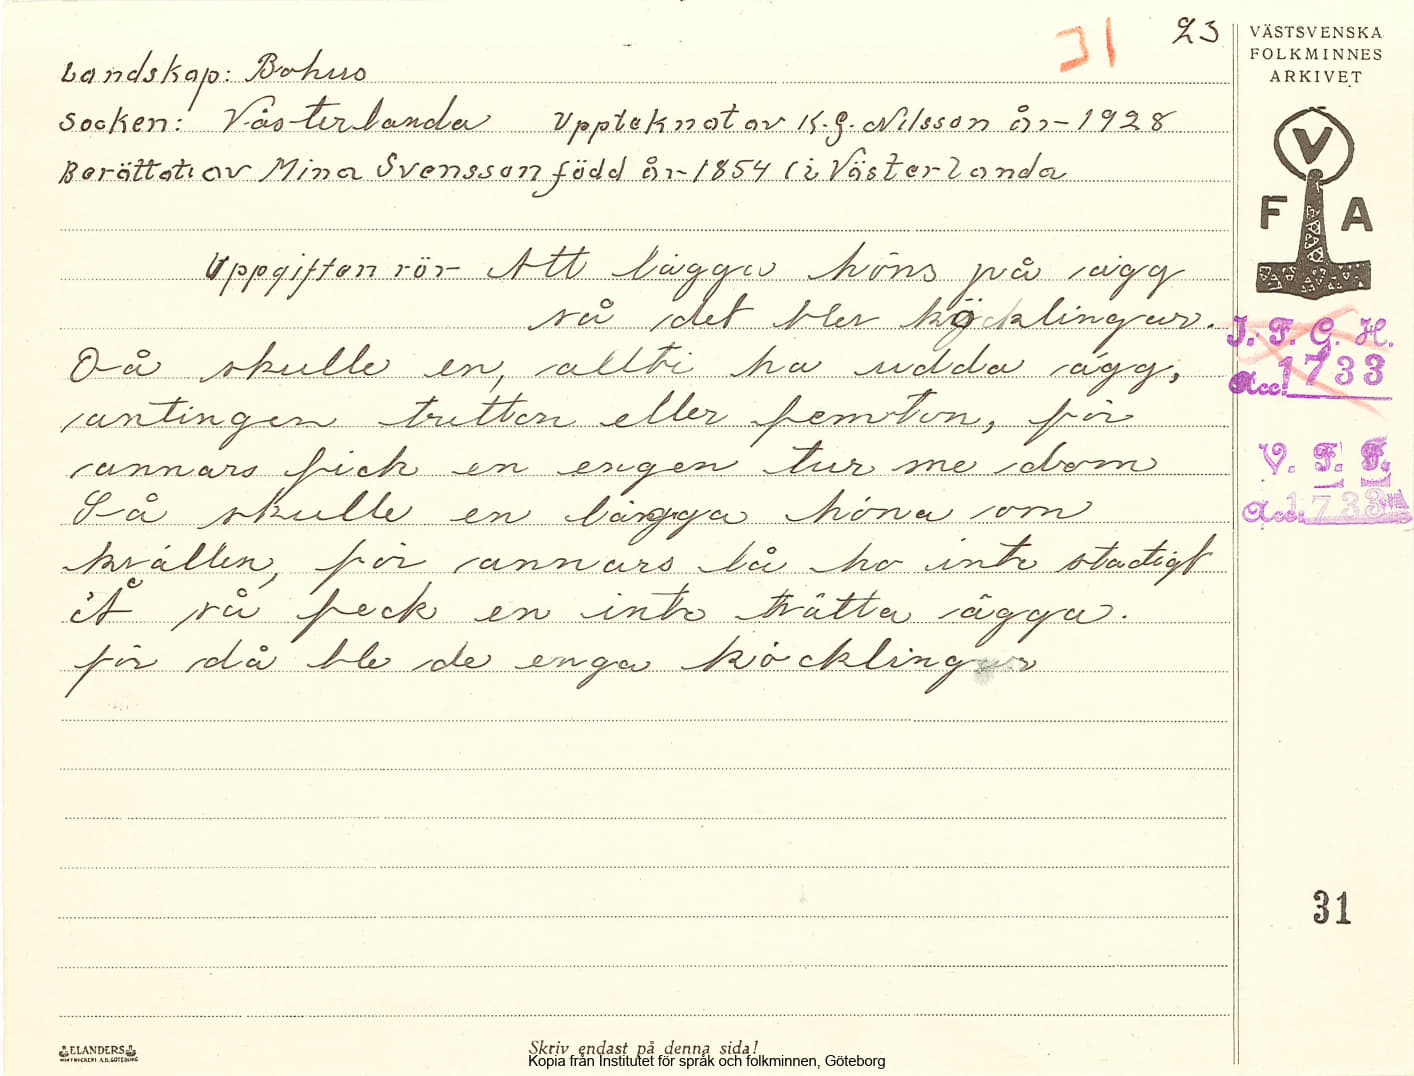 31
23
VÄSTSVENSKA
FOLKMINNES
ARKIVET
Landskap: Bohus
Socken: Västerlanda Upptecknat av K.G. Nilsson år 1928
Berättat av Mina Svensson född år 1854 i Västerlanda
V
F A
Uppgiften rör Att lägga höns på ägg
så det bler köcklingar.
I. F. G. H.
Acc. 1733
Då skulle en, allti ha udda ägg,
antingen tretton eller femton, för
annars fick en engen tur me dom
V. F. F.
Acc. 1733
Så skulle en lägga höna om
kvällen, för annars lå ho inte stadigt
Å så feck en inte trätta ägga.
för då ble de enga köcklingar
31
ELANDERS
Skriv endast på denna sida!
Kopia från Institutet för språk och folkminnen, Göteborg